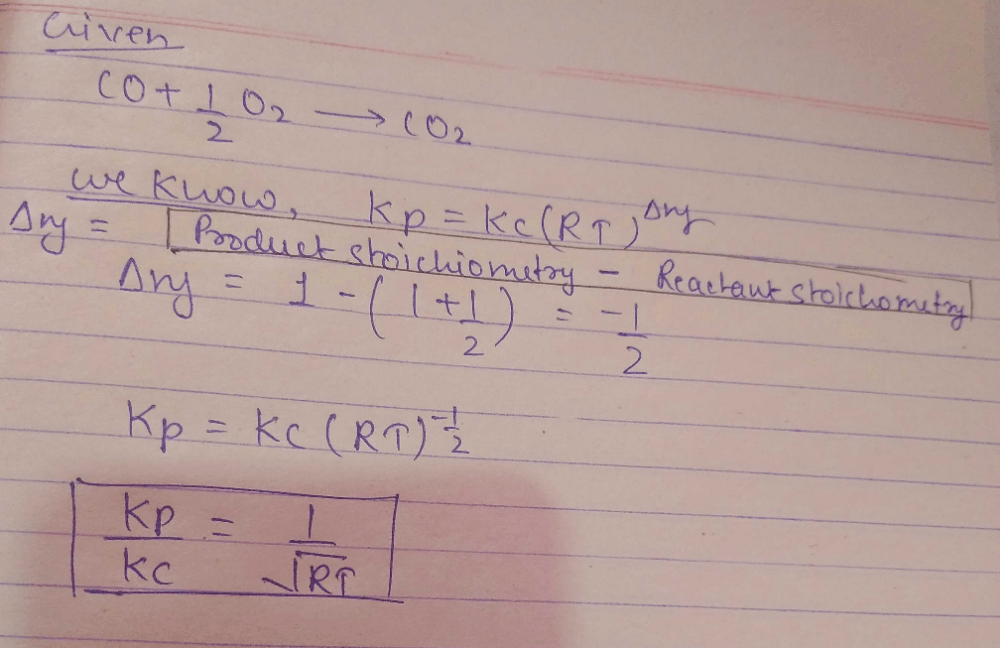 Given
CO + 1/2 O2 → CO2
we know, Kp = Kc (RT)^Δng
Δng = Product stoichiometry - Reactant stoichometry
Δng = 1 - (1 + 1/2) = -1/2
Kp = Kc (RT)^-1/2
Kp/Kc = 1/√RT